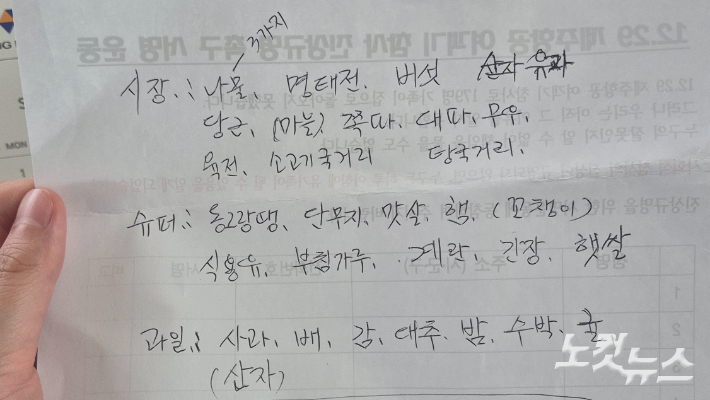 3가지
시장.: 나물, 명태전. 버섯 산자 유과
당근, (마늘) 쪽파, 대파, 무우,
육전, 소고기국거리 탕국거리,
슈퍼.: 동그랑땡, 단무지, 맛살, 햄, (꼬챙이)
식용유, 부침가루, 계란, 간장, 햇쌀
과일.: 사과, 배, 감, 대추, 밤, 수박, 귤
(산자)
노컷뉴스
12.29 제주항공 여객기 참사 진상규명 촉구 서명 운동
12.29 제주항공 여객기 참사로 179명 가족이 집으로 돌아오지 못했습니다.
그러나 우리는 아직
진상규명을 위한
주소 (시/군/구)
서명
비고
1
2
3
MON